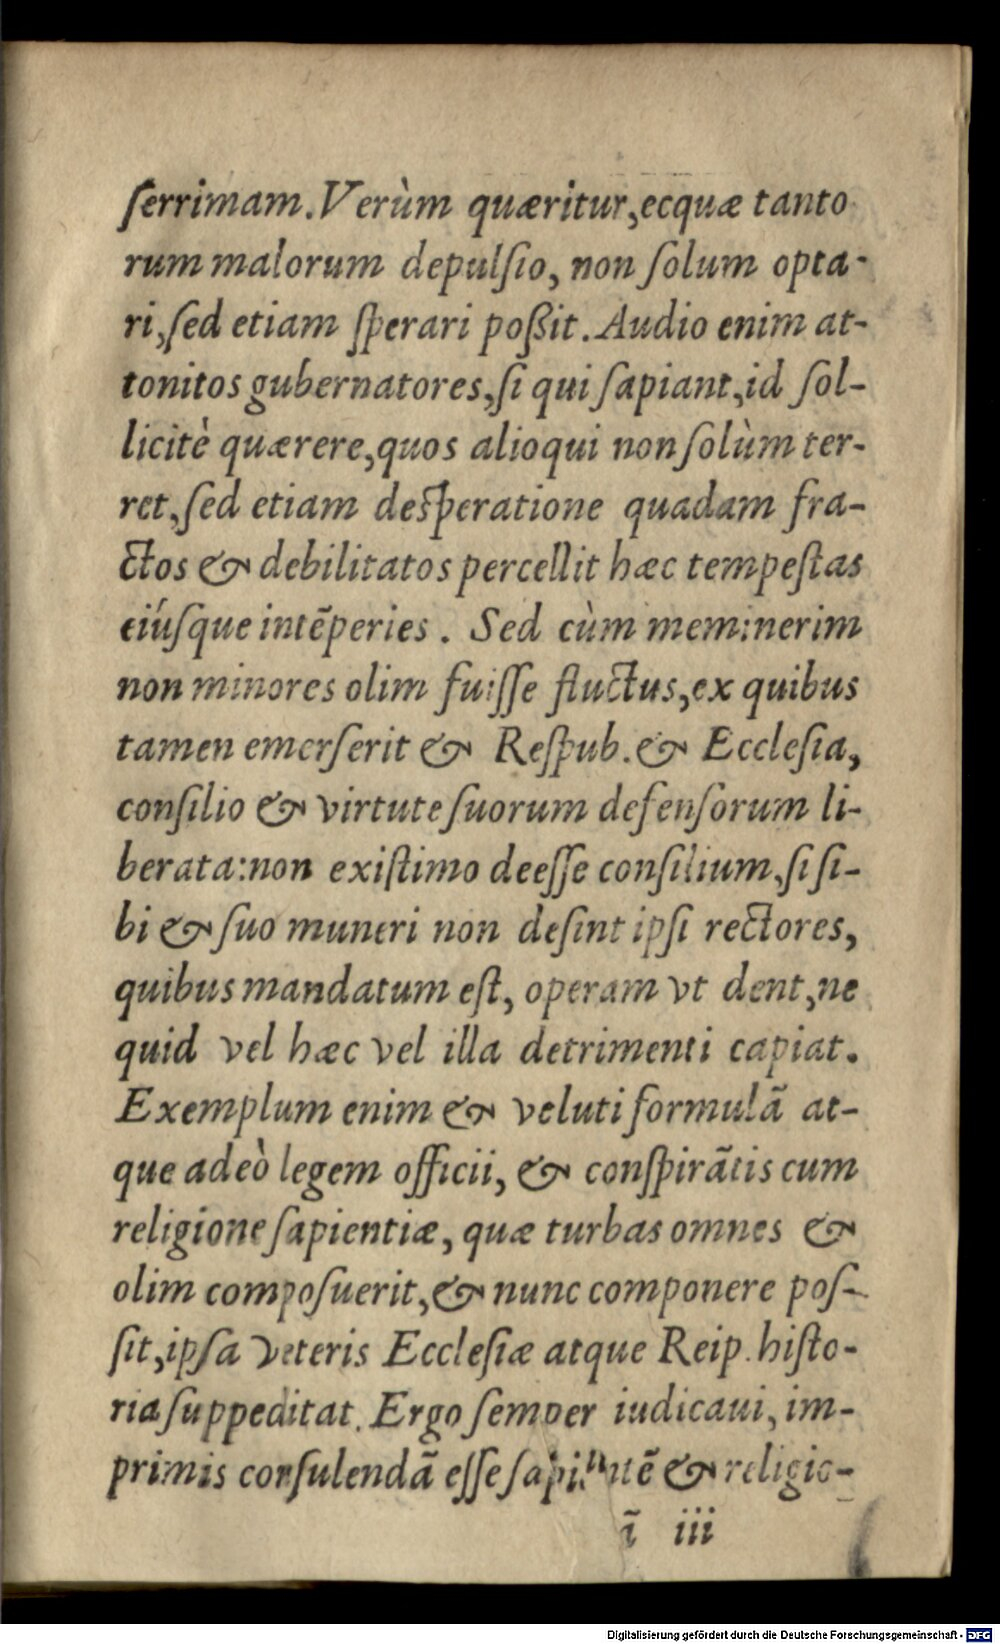 ſerrimam. Verùm quæritur, ecquæ tanto
rum malorum depulſio, non ſolum opta-
ri, ſed etiam ſperari poßit. Audio enim at-
tonitos gubernatores, ſi qui ſapiant, id ſol-
licitè quærere, quos alioqui non ſolùm ter-
ret, ſed etiam deſperatione quadam fra-
ctos & debilitatos percellit hæc tempeſtas
eiúſque intẽperies. Sed cùm meminerim
non minores olim fuiſſe fluctus, ex quibus
tamen emerſerit & Reſpub. & Eccleſia,
conſilio & virtute ſuorum defenſorum li-
berata: non exiſtimo deeſſe conſilium, ſi ſi-
bi & ſuo muneri non deſint ipſi rectores,
quibus mandatum eſt, operam vt dent, ne
quid vel hæc vel illa detrimenti capiat.
Exemplum enim & veluti formulã at-
que adeò legem officii, & conſpirãtis cum
religione ſapientiæ, quæ turbas omnes &
olim compoſuerit, & nunc componere poſ-
ſit, ipſa veteris Eccleſiæ atque Reip. hiſto-
ria ſuppeditat. Ergo ſemper iudicaui, im-
primis conſulendã eſſe & religio-
ĩ iii
Digitalisierung gefördert durch die Deutsche Forschungsgemeinschaft - DFG